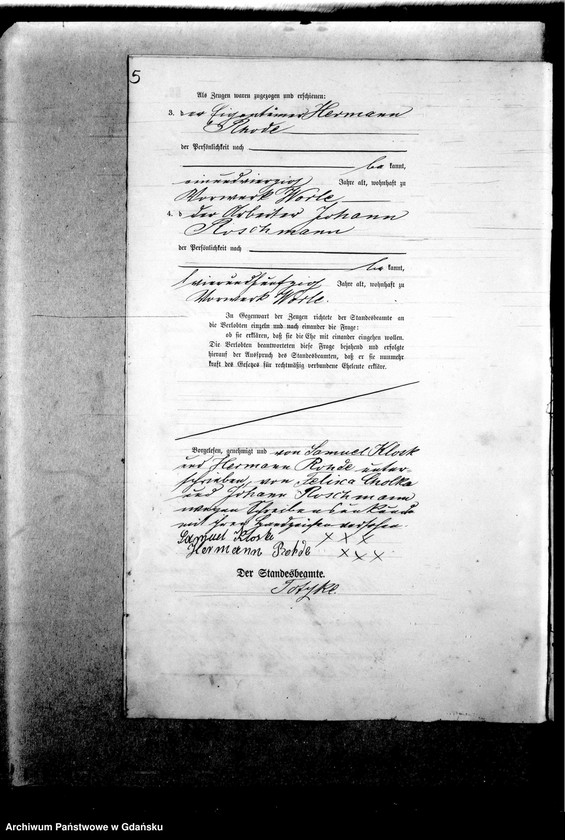 5
Als Zeugen waren zugezogen und erschienen:
3. der Eigentümer Hermann
Rhode
der Persönlichkeit nach
be kannt,
einundvierzig Jahre alt, wohnhaft zu
Vorwerk Worle
4. der Arbeiter Johann
Roschmann
der Persönlichkeit nach
be kannt,
vierundfünfzig Jahre alt, wohnhaft zu
Vorwerk Worle.
In Gegenwart der Zeugen richtete der Standesbeamte an
die Verlobten einzeln und nach einander die Frage:
ob sie erklären, daß sie die Ehe mit einander eingehen wollen.
Die Verlobten beantworteten diese Frage bejahend und erfolgte
hierauf der Ausspruch des Standesbeamten, daß er sie nunmehr
kraft des Gesetzes für rechtmäßig verbundene Eheleute erkläre.
Vorgelesen, genehmigt und von Samuel Klosk
und Hermann Rohde unter-
schrieben, von Felixa Cholka
und Johann Roschmann
wegen Schreibensunkunde
mit ihren Handzeichen versehen
Samuel Klosk x x x
Hermann Rohde x x x
Der Standesbeamte.
Archiwum Państwowe w Gdańsku